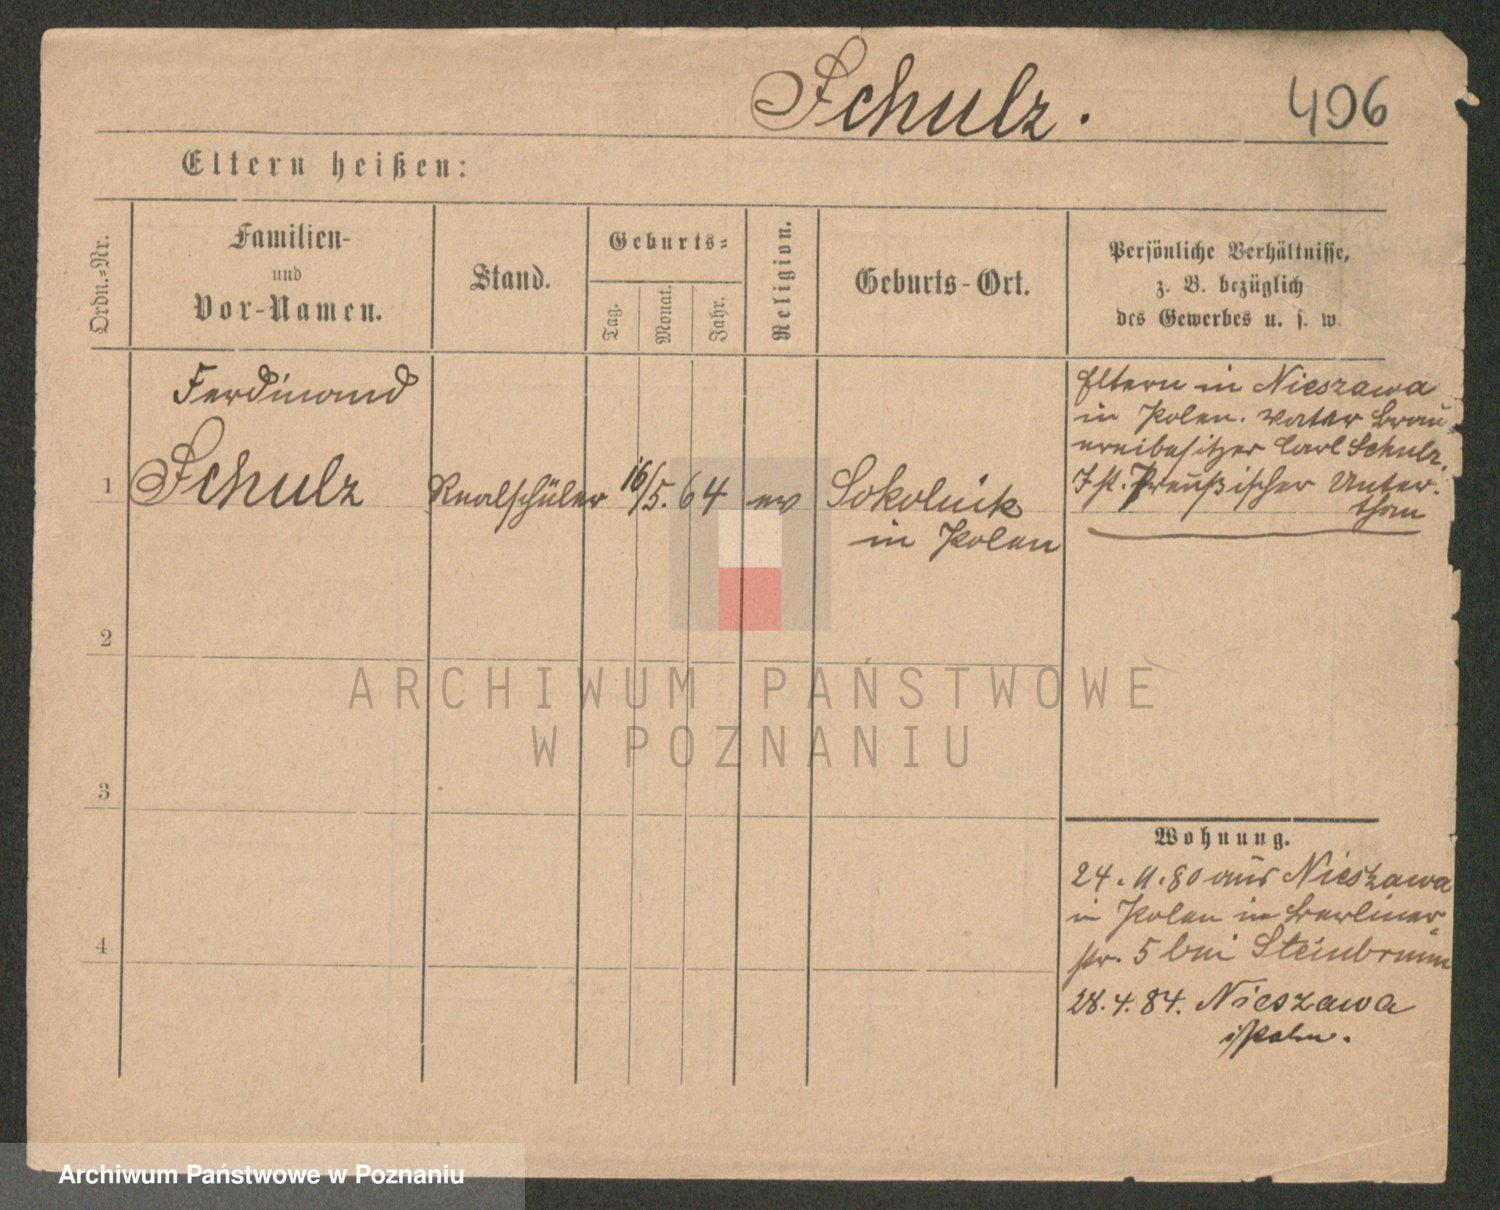 Schulz.
406
Eltern heißen:
Ordn.=Nr.
Familien-
und
Vor-Namen.
Stand.
Geburts=
Tag.
Monat.
Jahr.
Religion.
Geburts-Ort.
Persönliche Verhältnisse,
z. B. bezüglich
des Gewerbes u. s. w.
Ferdinand
1 Schulz Realschüler 16/5. 64 ev Sokolnik
in Polen
Eltern in Nieszawa
in Polen. Vater Brau=
ereibesitzer Carl Schulz.
Ist Preußischer Unter-
than
2
3
4
Wohnung.
24. 11. 80 aus Nieszawa
in Polen in Berliner=
str. 5 bei Steinbrunn
28. 4. 84. Nieszawa
i/Polen.
ARCHIWUM PAŃSTWOWE
W POZNANIU
Archiwum Państwowe w Poznaniu